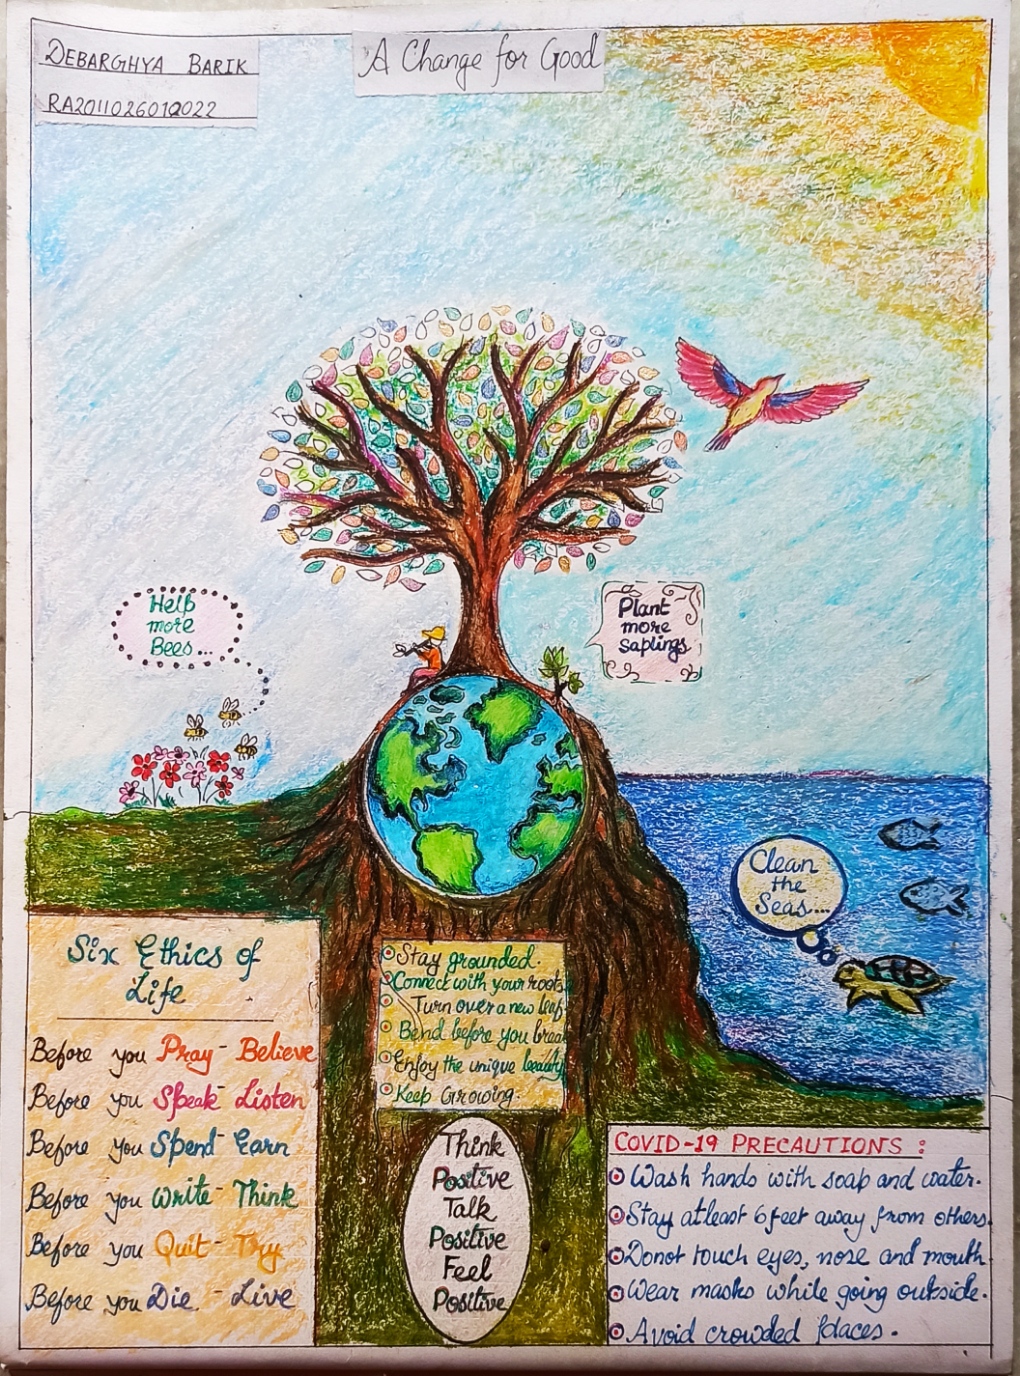 DEBARGHYA BARIK
RA2011026010022
A Change for Good
Help
more
Bees...
Plant
more
saplings
Clean
the
Seas...
Six Ethics of
Life
Before you Pray - Believe
Before you Speak - Listen
Before you Spend - Earn
Before you Write - Think
Before you Quit - Try
Before you Die. - Live
Stay grounded.
Connect with your roots
Turn over a new leaf
Bend before you break
Enjoy the unique beauty
Keep Growing.
Think
Positive
Talk
Positive
Feel
Positive
COVID-19 PRECAUTIONS :
Wash hands with soap and water.
Stay atleast 6 feet away from others.
Donot touch eyes, nose and mouth
Wear masks while going outside.
Avoid crowded places.